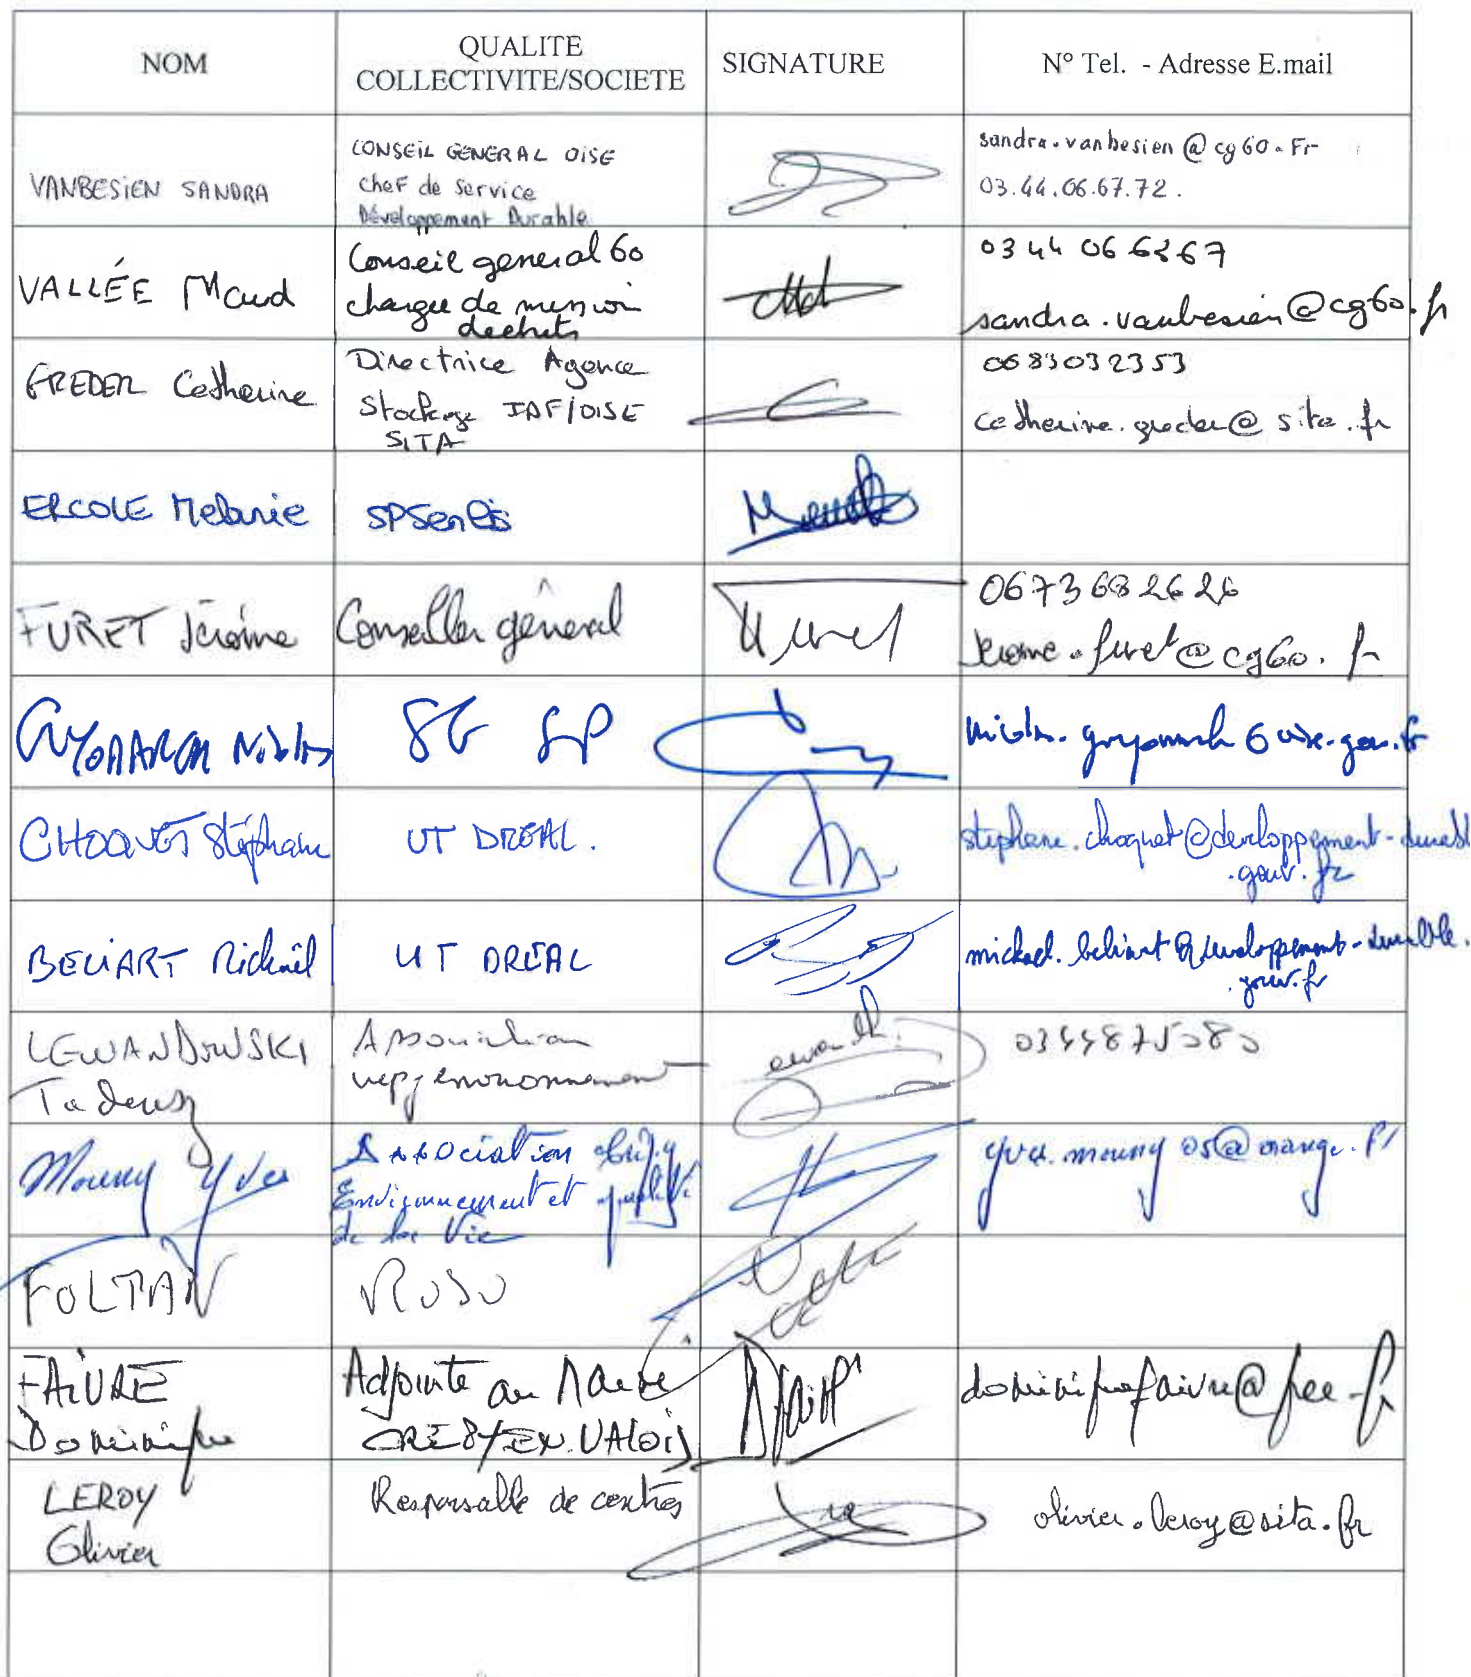 NOM
QUALITE
COLLECTIVITE/SOCIETE
SIGNATURE
N° Tel. - Adresse E.mail
VANBESIEN SANDRA
CONSEIL GENERAL OISE
Chef de Service
Développement Durable
sandra.vanbesien@cg60.Fr
03.44.06.67.72.
VALLÉE Maud
Conseil general 60
chargée de mission
dechets
03 44 06 6367
sandra.vanbesien@cg60.fr
GREDER Catherine
Directrice Agence
Stockage IDF/OISE
SITA
0683032353
catherine.greder@sita.fr
ERCOLE Melanie
SPSenlis
FURET Jérôme
Conseiller général
Furet
0673682626
Jerome.furet@cg60.fr
GUYONARCH Nicolas
SG SP
CHOQUET Stéphane
UT DREAL.
stephane.choquet@developpement-durable
.gouv.fr
BELIART Mickaël
UT DREAL
mickael.beliart@developpement-durable.
gouv.fr
LEWANDOWSKI
Tadeusz
Association
environnement
0344875080
Mouny Yves
Association
Environnement et qualité
de la Vie
yves.mouny05@orange.fr
FOLTAN
ROSO
FAIVRE
Dominique
Adjointe au Maire
CRÉPY EN VALOIS
dominiquefaivre@free.fr
LEROY
Olivier
Responsable de centres
olivier.leroy@sita.fr